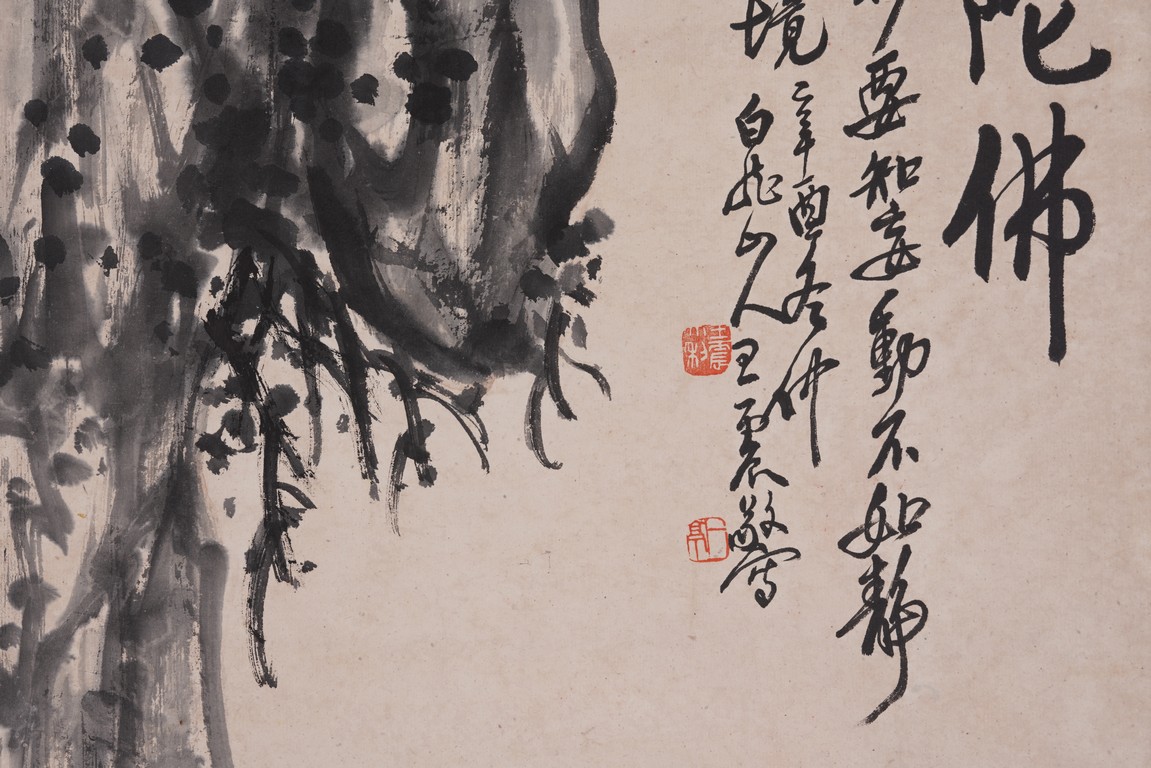 陀佛
要知妄動不如靜
境辛酉冬仲
白龍山人王震敬寫
王震
一亭